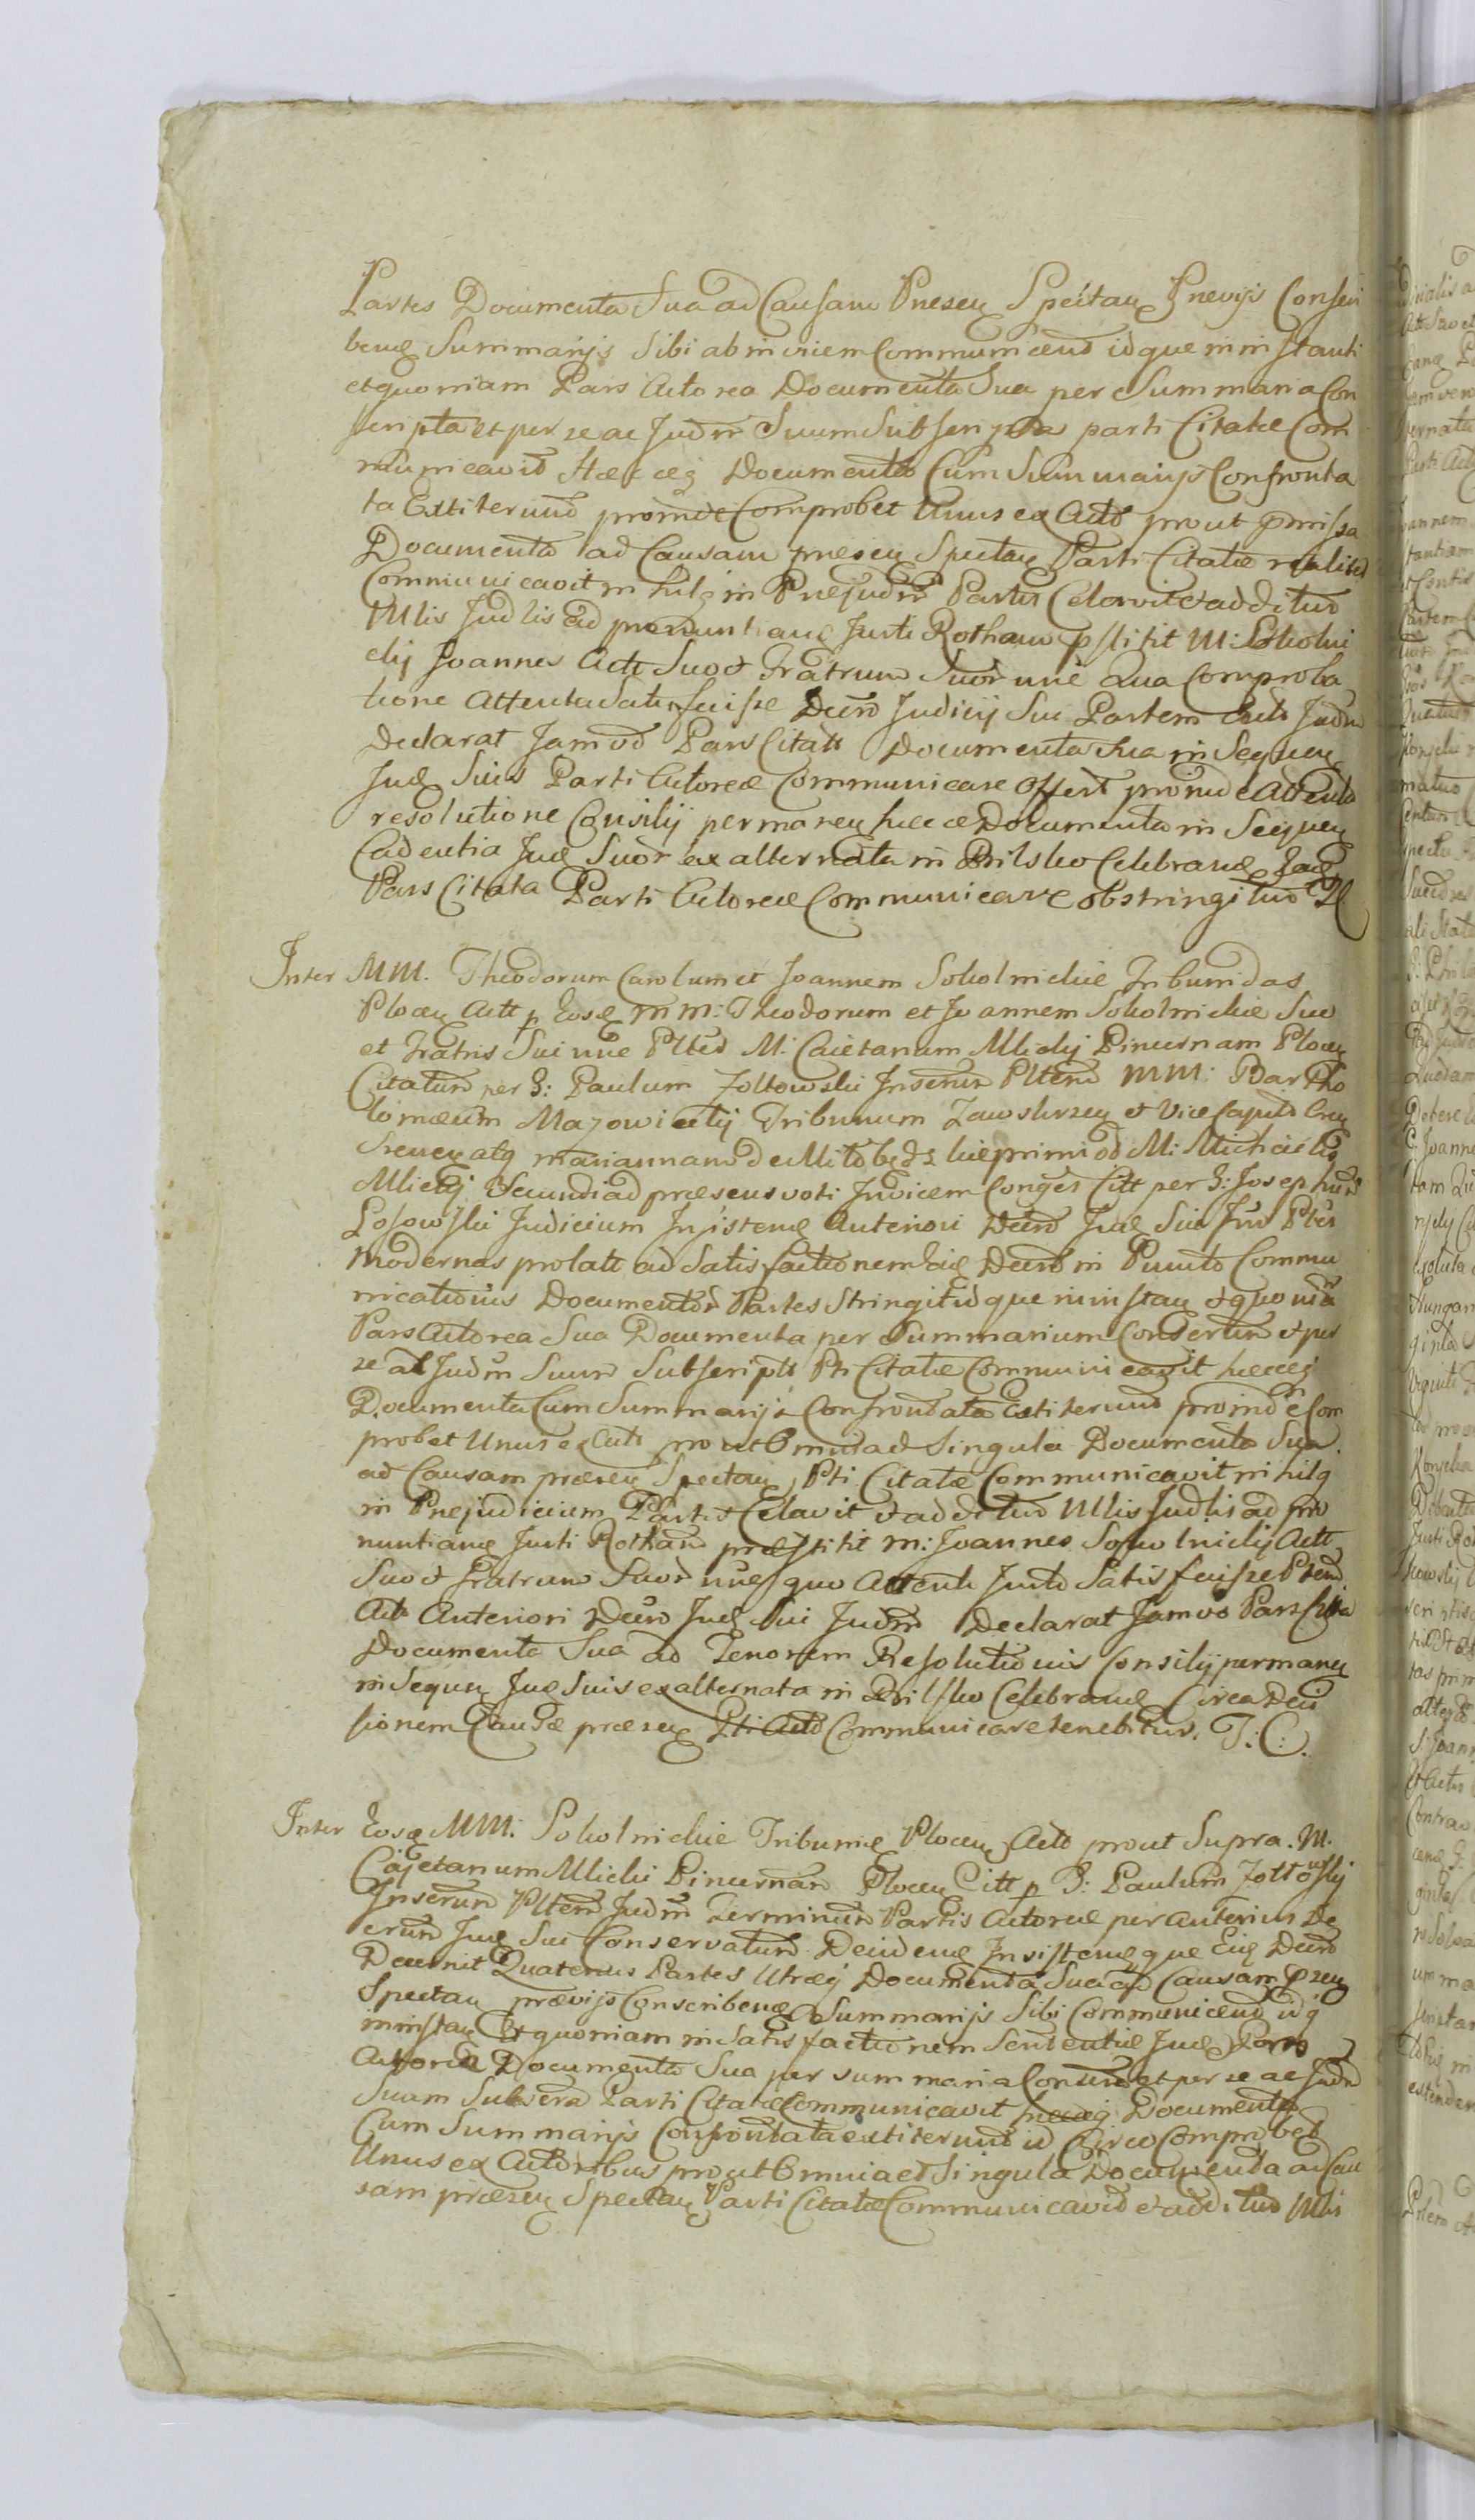 Partes Documenta Sua ad Causam Præsen Spectan Prævijs Conscri
bend Summarijs Sibi ab invicem Communicent idque in instanti
et quoniam Pars Actorea Documenta Sua per Summaria Con
scripta et per se ac Judm Suum Subscripta parti Citatæ Com
municavit Hæcæq Documenta Cum Summarijs Confronta
ta Extiterunt proinde Comprobet Unus ex Actt prout præmissa
Documenta ad Causam præsen Spectan Parti Citatæ realiter
Communicavit nihilq in Præjudm Partis Celavit & additur
Mlis Judlis ad pronuntiand Justi Rotham pstitit M: Sokolni
cky Joannes Actt Suo & Fratrum Suor nne Qua Comproba
tione Attenta Satisfecisse Decro Judicij Sui Partem Acto Judm
Declarat Jam vo Pars Citatt Documenta Sua in Sequen
Jud Suis Parti Actoreæ Communicare Offert proinde Attenta
resolutione Consilij permanen hæcce Documenta in Sequen
Cadentia Jud Suor ex alternata in Bilsko Celebrand
Pars Citata Parti Actoreæ Communicare obstringitur
Inter MM. Theodorum Carolum et Joannem Sokolnickie Tribunidas
Plocen Actt p Eosd MM: Theodorum et Joannem Sokolnickie Suo
et Fratris Sui nne Pltes M: Caietanum Mlicky Pincernam Plocen
Citatum per G: Paulum Zoltowski Inserum Pltem MM: Bartho
lomæum Mazowiecky Tribunum Zawskrzen et Vice Capit
Srenen atq mariannam de primi vo M: Michaelis
Mlicky Secundi ad præsens voti Invicem Conges Citt per G: Josephum
Losowski Judicium Insistend Anteriori Decro Jud Sui Inr Ptes
Modernas prolatt ad Satisfactionem Eius Decreti in Puncto Commu
nicationis Documentor Partes Stringit idque in instan et quoniam
Pars Actorea Sua Documenta per Summarium Consertum et per
se ac Judm Suum Subscriptt Pti Citatæ Communicavit hæcæq
Documenta Cum Summarijs Confrontata Extiterunt proinde Com
probet Unus ex Actt prout Omnia et Singula Documenta Sua
ad Causam præsen Spectan Pti Citatæ Communicavit nihilq
in Præjudicium Partis Celavit & additur Mlis Judlis ad pro
nuntiand Justi Rotham præstitit M: Joannes Sokolnicky Actt
Suo & Fratrum Suor nne quo Attento Jurto Satisfecisse Ptem
Acto Anteriori Decro Jud Sui Judm Declarat Jam vo Pars Citta
Documenta Sua ad Tenorem Resolutionis Consilij permanen
in Sequen Jud Suis ex alternata in Bilsko Celebrand Circa Deci
sionem Causæ præsen Pti Acto Communicare tenebitur. T: C:
Inter Eosd MM: Sokolnickie Tribunid Plocen Acto prout Supra. M.
Cajetanum Mlicki Pincernam Plocen Citt p G: Paulum Zoltowsky
Inserum Pltem Judm Terminum Partis Actoreæ per Anterius De
crum Jud Sui Conservatum Deindend Insistendque Eid Decro
Decernit Quatenus Partes Utræq Documenta Sua ad Causam præsen
Spectan prævijs Conscribend Summarijs Sibi Communicent idq
in instan Et quoniam in Satisfactionem Sententiæ Jud Pars
Actorea Documenta Sua per summaria Conserta et per se ac Judm
Suum Subscra Parti Citatæ Communicavit hæcæq Documenta
Cum Summarijs Confrontata extiterunt id Circo Comprobet
Unus ex Actoribus prout Omnia et Singula Documenta ad Cau
sam præsen Spectan Parti Citatæ Communicavit & additur Mlis